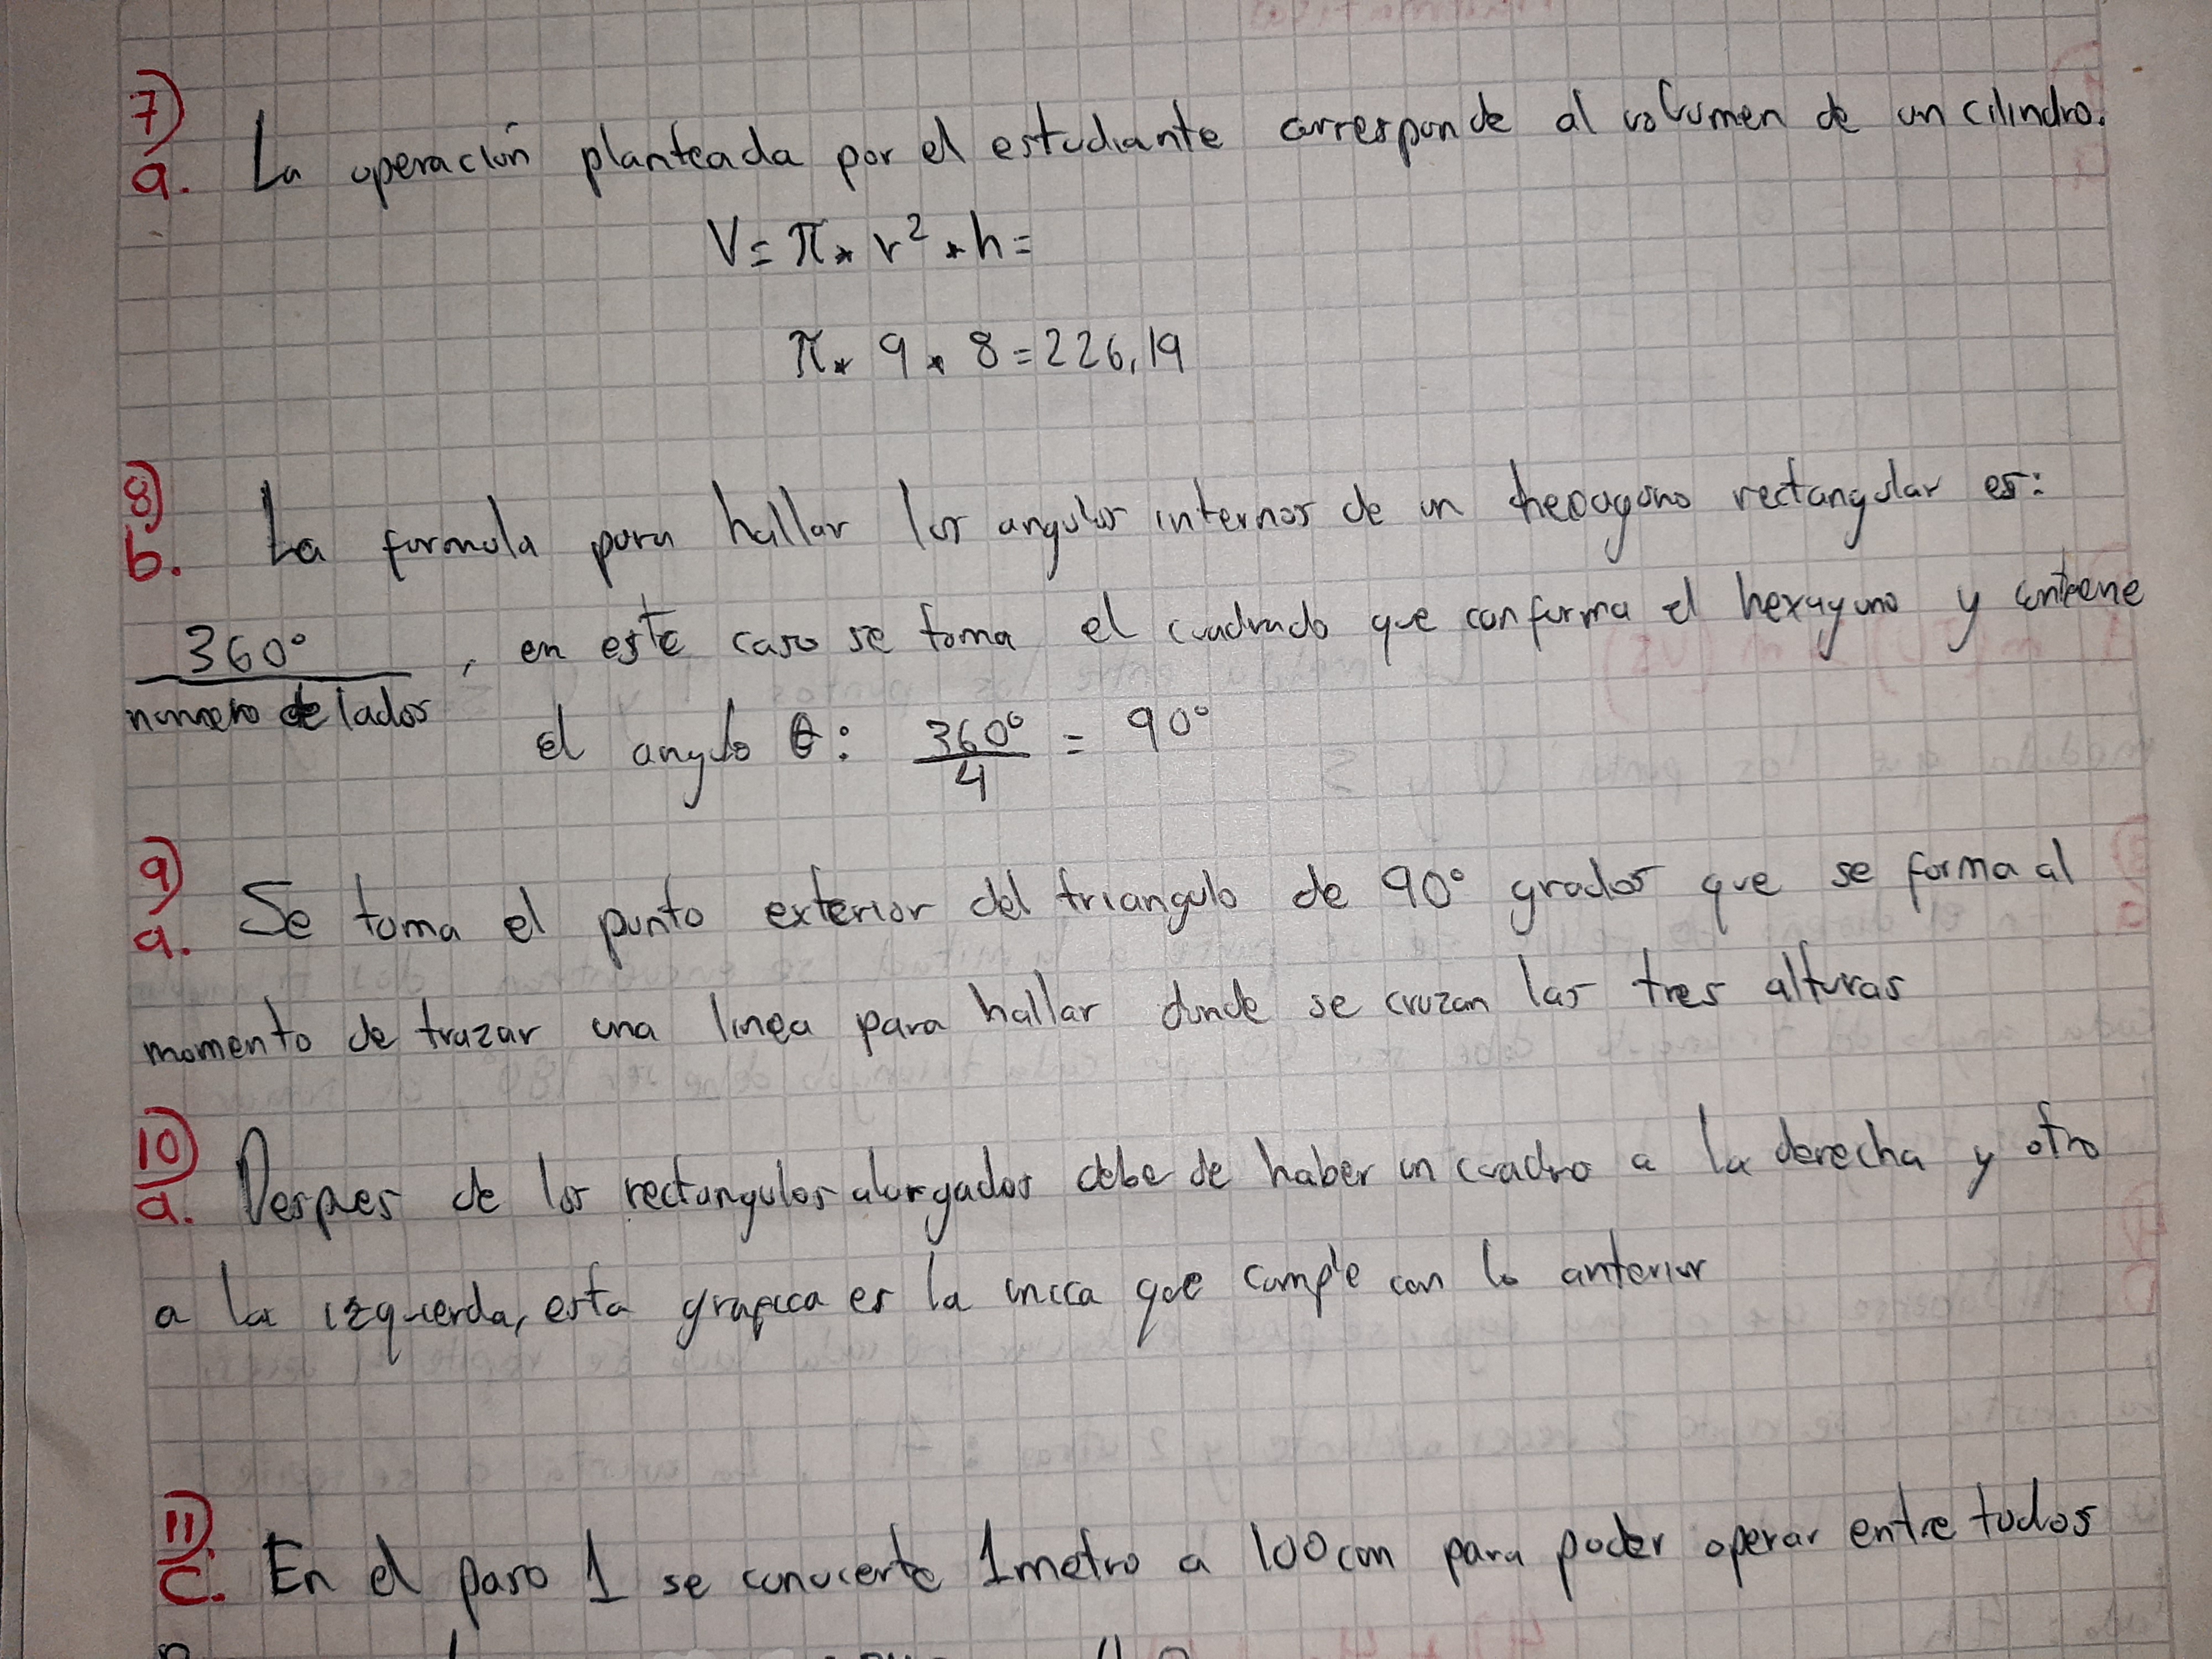 7)
a. La operación planteada por el estudiante corresponde al volumen de un cilindro.
V = π * r² * h =
π * 9 * 8 = 226,19
8)
b. La formula para hallar los angulos internos de un hexagono rectangular es:
360° / numero de lados, en este caso se toma el cuadrado que conforma el hexagono y contiene
el angulo θ: 360° / 4 = 90°
9)
a. Se toma el punto exterior del triangulo de 90° grados que se forma al
momento de trazar una linea para hallar donde se cruzan las tres alturas
10)
a. Despues de los rectangulos alargados debe de haber un cuadro a la derecha y otro
a la izquierda, esta grafica es la unica que cumple con lo anterior
11)
C. En el paso 1 se convierte 1 metro a 100 cm para poder operar entre todos